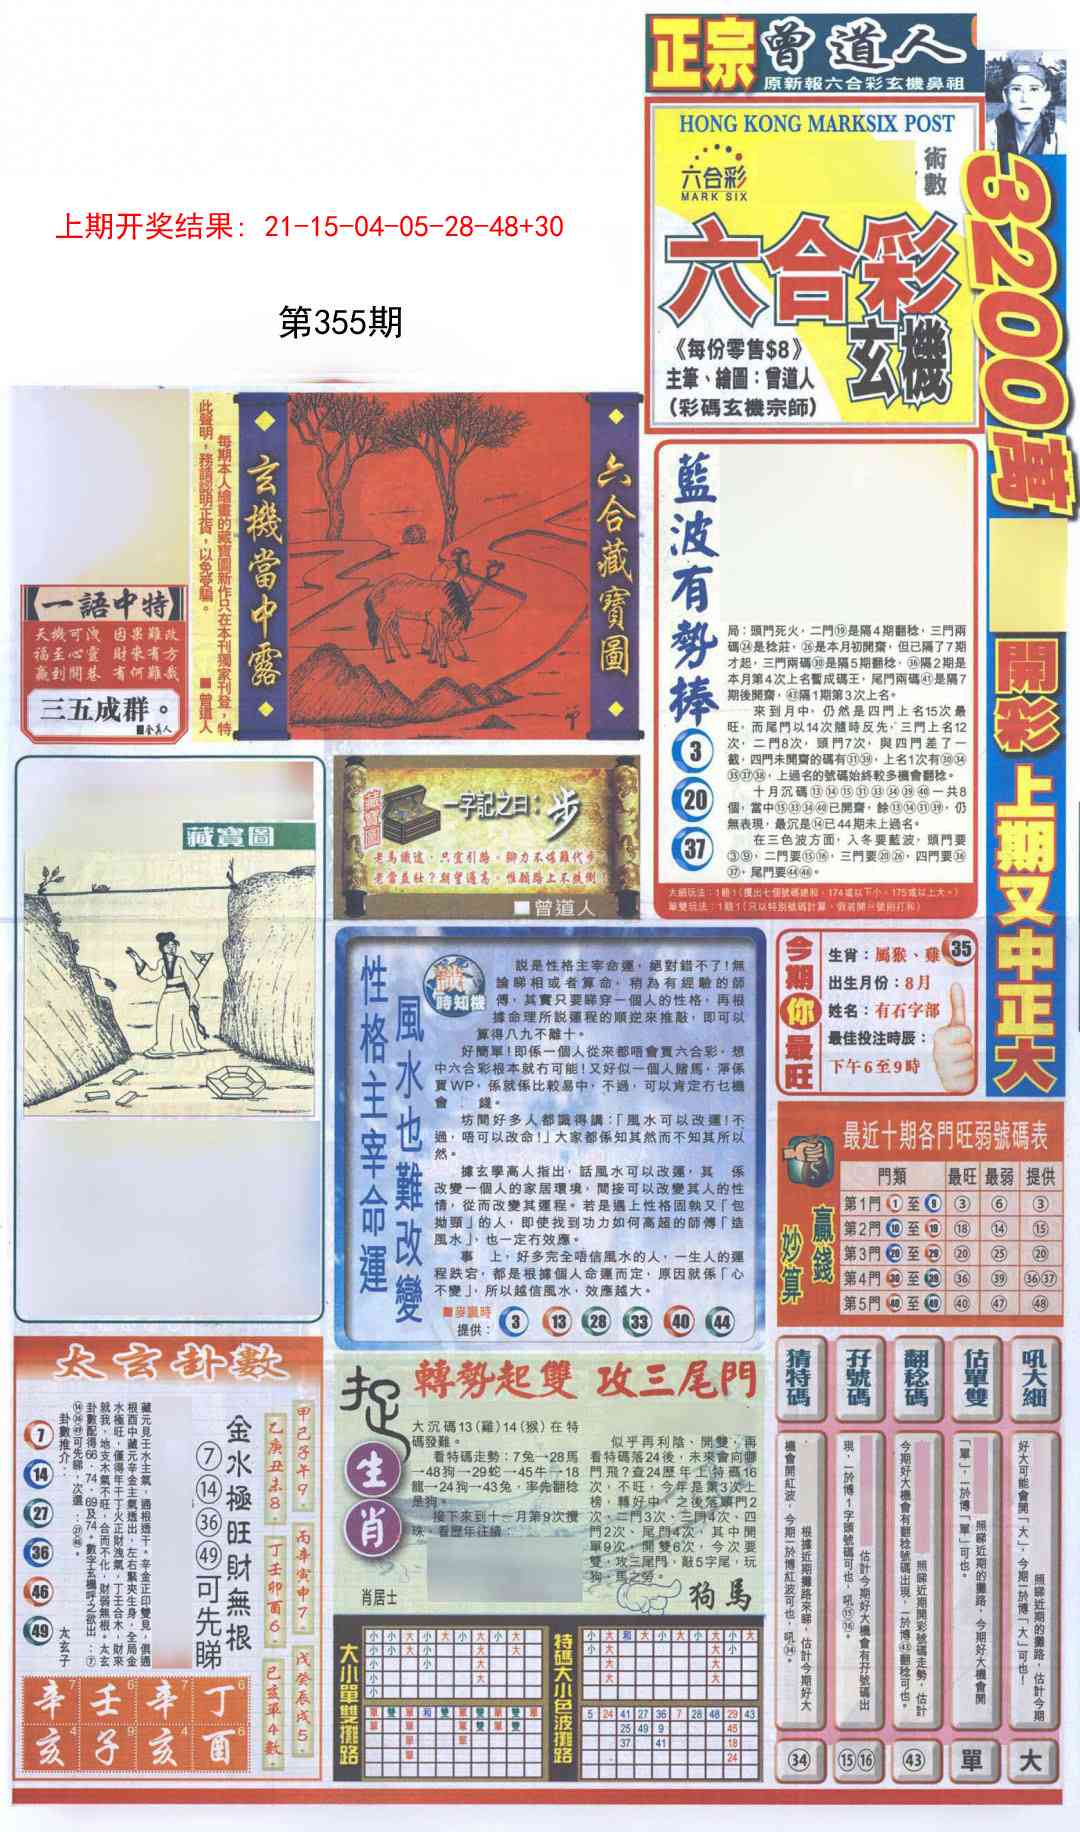 正宗曾道人
原新報六合彩玄機鼻祖
HONG KONG MARKSIX POST
術數
六合彩
MARK SIX
六合彩
玄機
《每份零售$8》
主筆、繪圖：曾道人
（彩碼玄機宗師）
3200萬
開彩 上期又中正大
上期开奖结果: 21-15-04-05-28-48+30
第355期
每期本人繪畫的藏寶圖新作只在本刊獨家刊登，特
此聲明，務請認明正貨，以免受騙。
■曾道人
玄機當中露
六合藏寶圖
一語中特
天機可洩 因果難改
福至心靈 財來有方
贏到開巷 有何難哉
三五成群。
藏寶圖
藏寶圖
一字記之曰：步
老馬識途，只宜引路。腳力不堪難代步
老當益壯？期望過高。惟願路上不跌倒！
■曾道人
藍波有勢捧
3
20
37
局：頭門死火，二門⑲是隔4期翻稔，三門兩
碼㉔是稔莊，㉖是本月初開齋，但已隔了7期
才起，三門兩碼㉚是隔5期翻稔，㊱隔2期是
本月第4次上名暫成碼王，尾門兩碼㊶是隔7
期後開齋，㊸隔1期第3次上名。
來到月中，仍然是四門上名15次最
旺，而尾門以14次隨時反先，三門上名12
次，二門8次，頭門7次，與四門差了一
截，四門未開齋的碼有㉛㊴，上名1次有㉚㉞
㉟㊲㊳，上過名的號碼始終較多機會翻稔。
十月沉碼⑬⑭⑮㉛㉝㉞㊴㊵一共8
個，當中⑮㉝㉞㊵已開齋，餘⑬⑭㉛㊴，仍
無表現，最沉是⑭已44期未上過名。
在三色波方面，入冬要藍波，頭門要
③⑨，二門要⑮⑯，三門要⑳㉖，四門要㊱
㊲，尾門要㊹㊽。
大細玩法：1賠1（攪出七個號碼總和，174或以下小，175或以上大。）
單雙玩法：1賠1（只以特別號碼計算，假若開49號則打和）
今期你最旺
生肖：屬猴、雞
35
出生月份：8月
姓名：有石字部
最佳投注時辰：
下午6至9時
性格主宰命運
風水也難改變
識時知機
說是性格主宰命運，絕對錯不了！無
論睇相或者算命，稍為有經驗的師
傅，其實只要睇穿一個人的性格，再根
據命理所説運程的順逆來推敲，即可以
算得八九不離十。
好簡單！即係一個人從來都唔會買六合彩，想
中六合彩根本就冇可能！又好似一個人賭馬，淨係
買WP，係就係比較易中，不過，可以肯定冇乜機
會 錢。
坊間好多人都識得講：「風水可以改運！不
過，唔可以改命！」大家都係知其然而不知其所以
然。
據玄學高人指出，話風水可以改運，其 係
改變一個人的家居環境，間接可以改變其人的性
情，從而改變其運程。若是遇上性格固執又「包
拗頸」的人，即使找到功力如何高超的師傅「造
風水」，也一定冇效應。
事 上，好多完全唔信風水的人，一生人的運
程跌宕，都是根據個人命運而定，原因就係「心
不變」，所以越信風水，效應越大。
■麥識時
提供：
3 13 28 33 40 44
最近十期各門旺弱號碼表
贏錢妙算
門類 最旺 最弱 提供
第1門 1 至 9 ③ ⑥ ③
第2門 10 至 19 ⑱ ⑭ ⑮
第3門 20 至 29 ⑳ ㉕ ⑳
第4門 30 至 39 ㊱ ㊴ ㊱㊲
第5門 40 至 49 ㊵ ㊼ ㊽
太玄卦數
甲己子午9．
乙庚丑未8．
丙辛寅申7．
丁壬卯酉6．
戊癸辰戌5．
己亥單4數．
金水極旺財無根
⑦⑭㊱㊾可先睇
藏元見壬水主氣，通根透干。辛金正印雙見，俱通
根酉中藏元辛金主氣透出，左右緊夾生身，全局金
水極旺，僅得年干丁火正財洩氣，丁壬合木，財來
就我，地支木氣不旺，合而不化，財弱無根。太玄
卦數配得66、74、69及74。數字玄機呼之欲出：⑦
⑭㊱㊾可先睇，次選：㉗㊻。
卦數推介：
太玄子
7
14
27
36
46
49
辛 7 壬 6 辛 7 丁 6
亥 4 子 9 亥 4 酉 6
捉生肖
轉勢起雙 攻三尾門
大沉碼13（雞）14（猴）在特
碼發難。
看特碼走勢：7兔→28馬
→48狗→29蛇→45牛→18
龍→24狗→43兔，率先翻稔
是狗。
接下來到十一月第9次攪
珠，看歷年往績：
似乎再利陰、開雙，再
看特碼落24後，未來會向哪
門飛？查24歷年上特碼16
次，不旺，今年是第3次上
榜，轉好中，之後落頭門2
次、二門3次、三門4次、四
門2次、尾門4次，其中開
單9次。開雙6次，今次要
雙，攻三尾門，敲5字尾，玩
狗、馬之勞。
肖居士
狗 馬
大小單雙攤路
特碼大小色波攤路
5 24 41 27 36 7 28 48 29 43
25 49 9 45
37 41 18
24
猜特碼
根據近期攤路來睇，估計今期好大
機會開紅波，今期一於博紅波可也，吼㉞。
㉞
孖號碼
估計今期好大機會有孖號碼出
現，一於博1字頭號碼可也，吼⑮⑯。
⑮⑯
翻稔碼
照睇近期開彩號碼走勢，估計
今期好大機會有翻稔號碼出現，一於博㊸翻稔可也。
㊸
估單雙
照睇近期的攤路，今期好大機會開
「單」，一於博「單」可也。
單
吼大細
照睇近期的攤路，估計今期
好大可能會開「大」，今期一於博「大」可也！
大